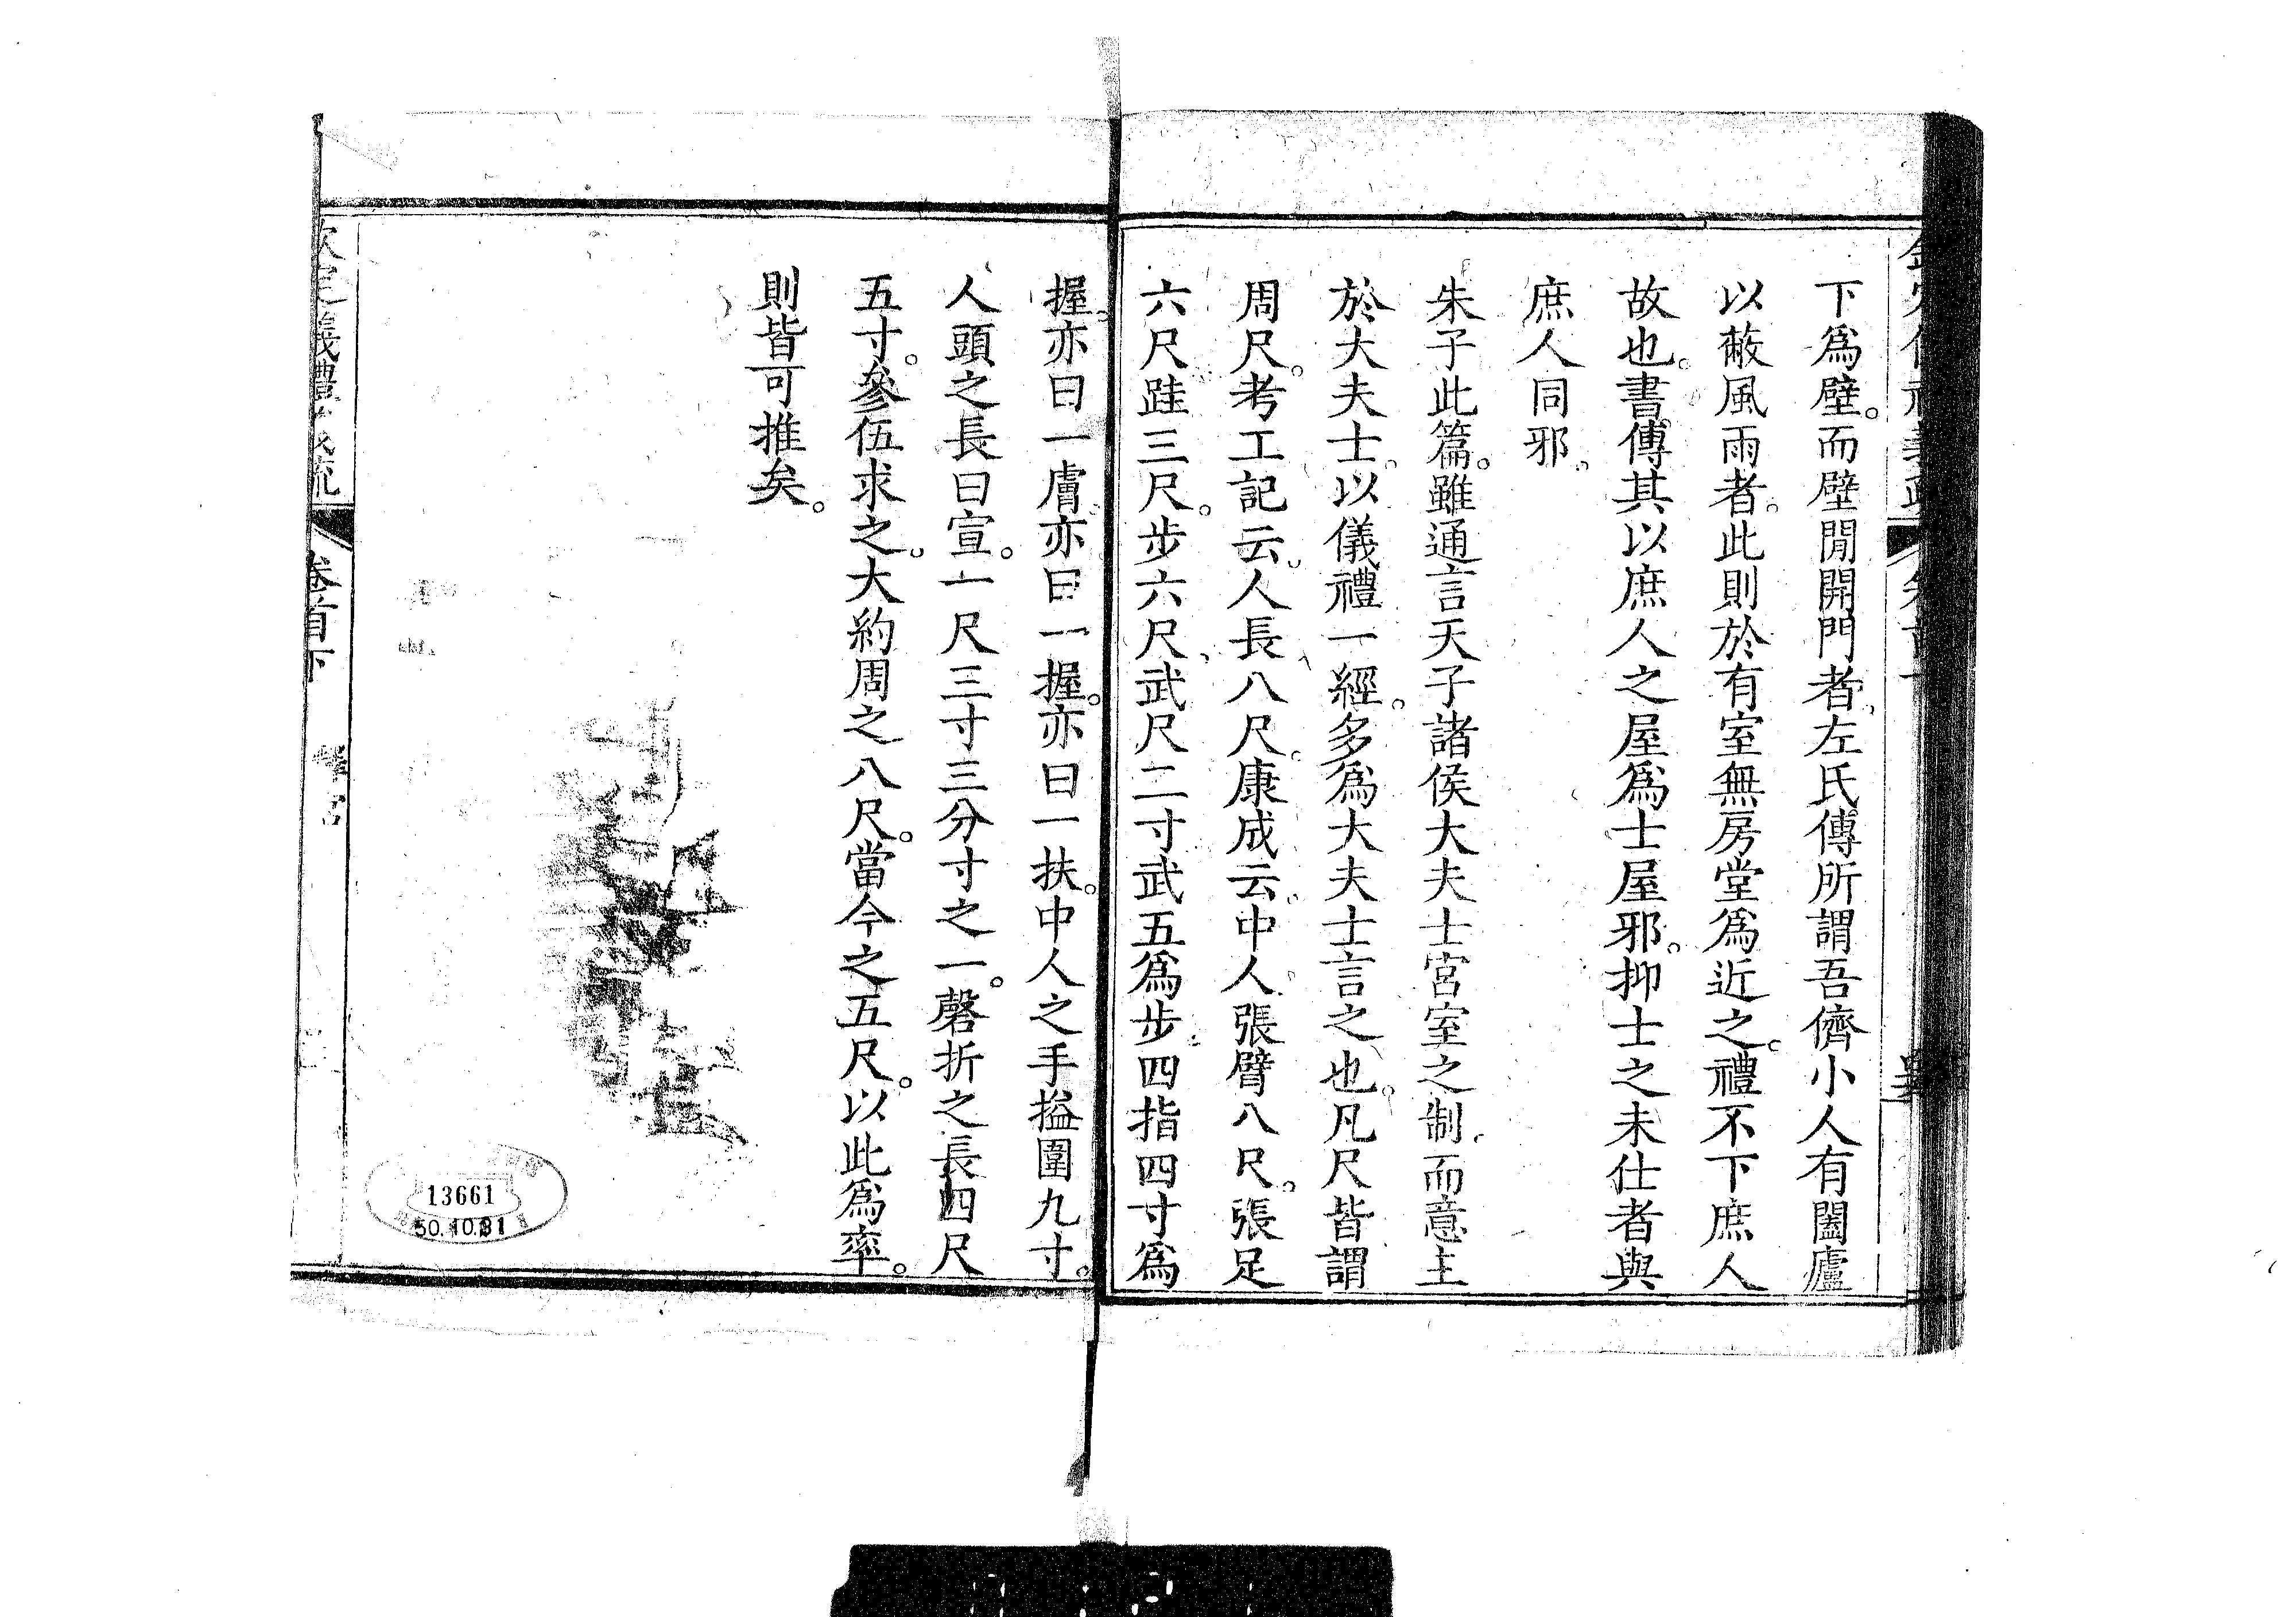 下爲壁。而壁閒開門者、左氏傳所謂吾儕小人有闔廬
以蔽風雨者。此則於有室無房堂爲近之。禮不下庶人
故也。書傳其以庶人之屋爲士屋邪。抑士之未仕者與
庶人同邪。
朱子此篇。雖通言天子諸侯大夫士宮室之制、而意主
於大夫士。以儀禮一經。多爲大夫士言之也。凡尺皆謂
周尺。考工記云。人長八尺。康成云。中人張臂八尺。張足
六尺跬三尺。步六尺、武尺二寸武五爲步。四指四寸爲
握。亦曰一膚亦曰一握。亦曰一扶。中人之手搤圍九寸。
人頭之長曰宣。一尺三寸三分寸之一。磬折之長四尺
五寸。參伍求之。大約周之八尺。當今之五尺。以此爲率。
則皆可推矣。
欽定儀禮義疏 卷首下 釋宮
13661
50.10.31